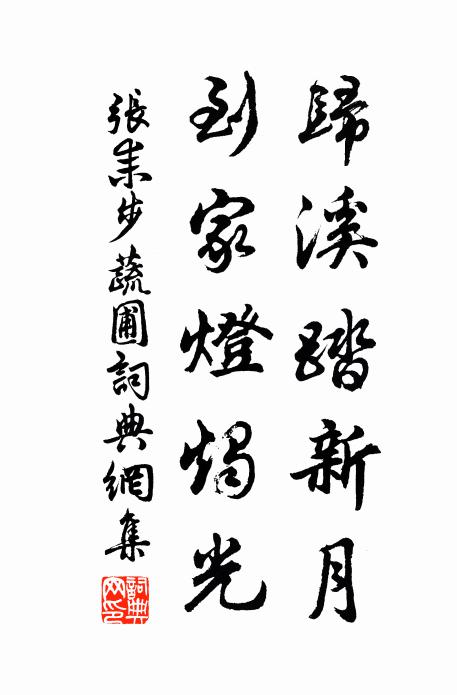 歸溪踏新月
到家燈燭光
張耒步蔬圃詞典網集
詞典網印